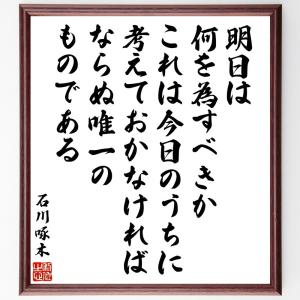 明日は
何を為すべきか
これは今日のうちに
考えておかなければ
ならぬ唯一の
ものである
石川啄木